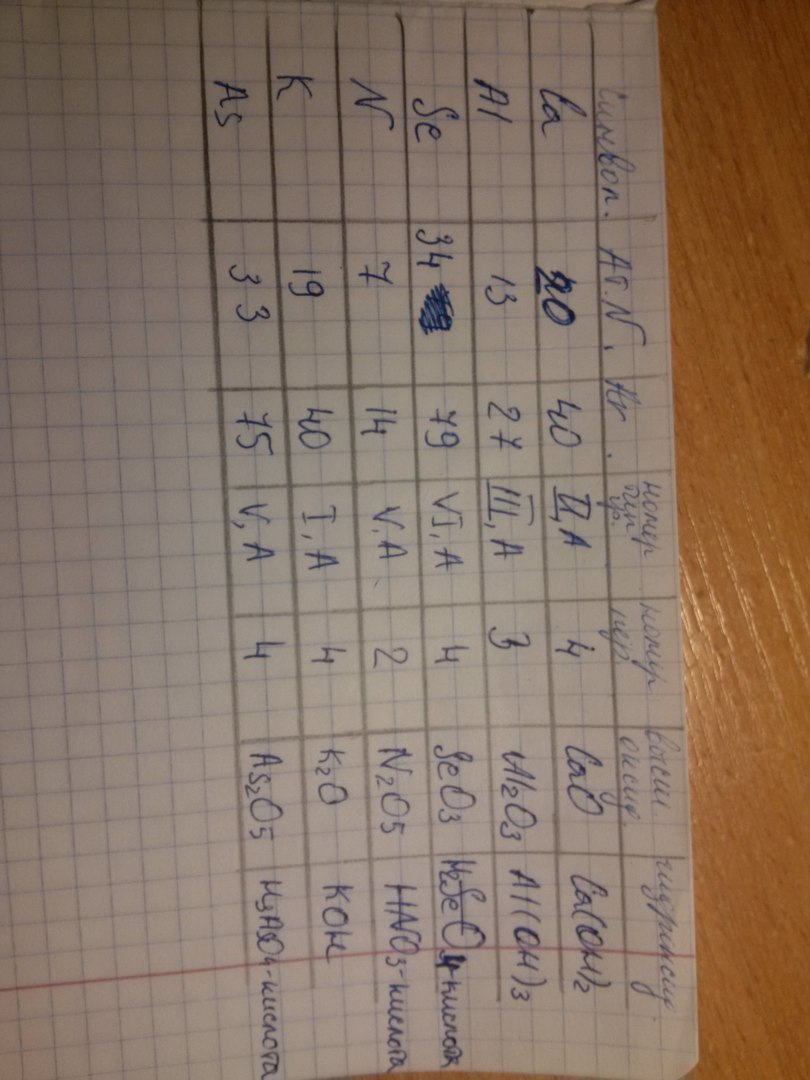 Символ. Ат.N. Ar. номер гр. номер пер. высш. оксид. гидроксид
Ca 20 40 II,A 4 CaO Ca(OH)2
Al 13 27 III,A 3 Al2O3 Al(OH)3
Se 34 79 VI,A 4 SeO3 H2SeO4-кислота
N 7 14 V,A 2 N2O5 HNO3-кислота
K 19 40 I,A 4 K2O KOH
As 33 75 V,A 4 As2O5 H3AsO4-кислота